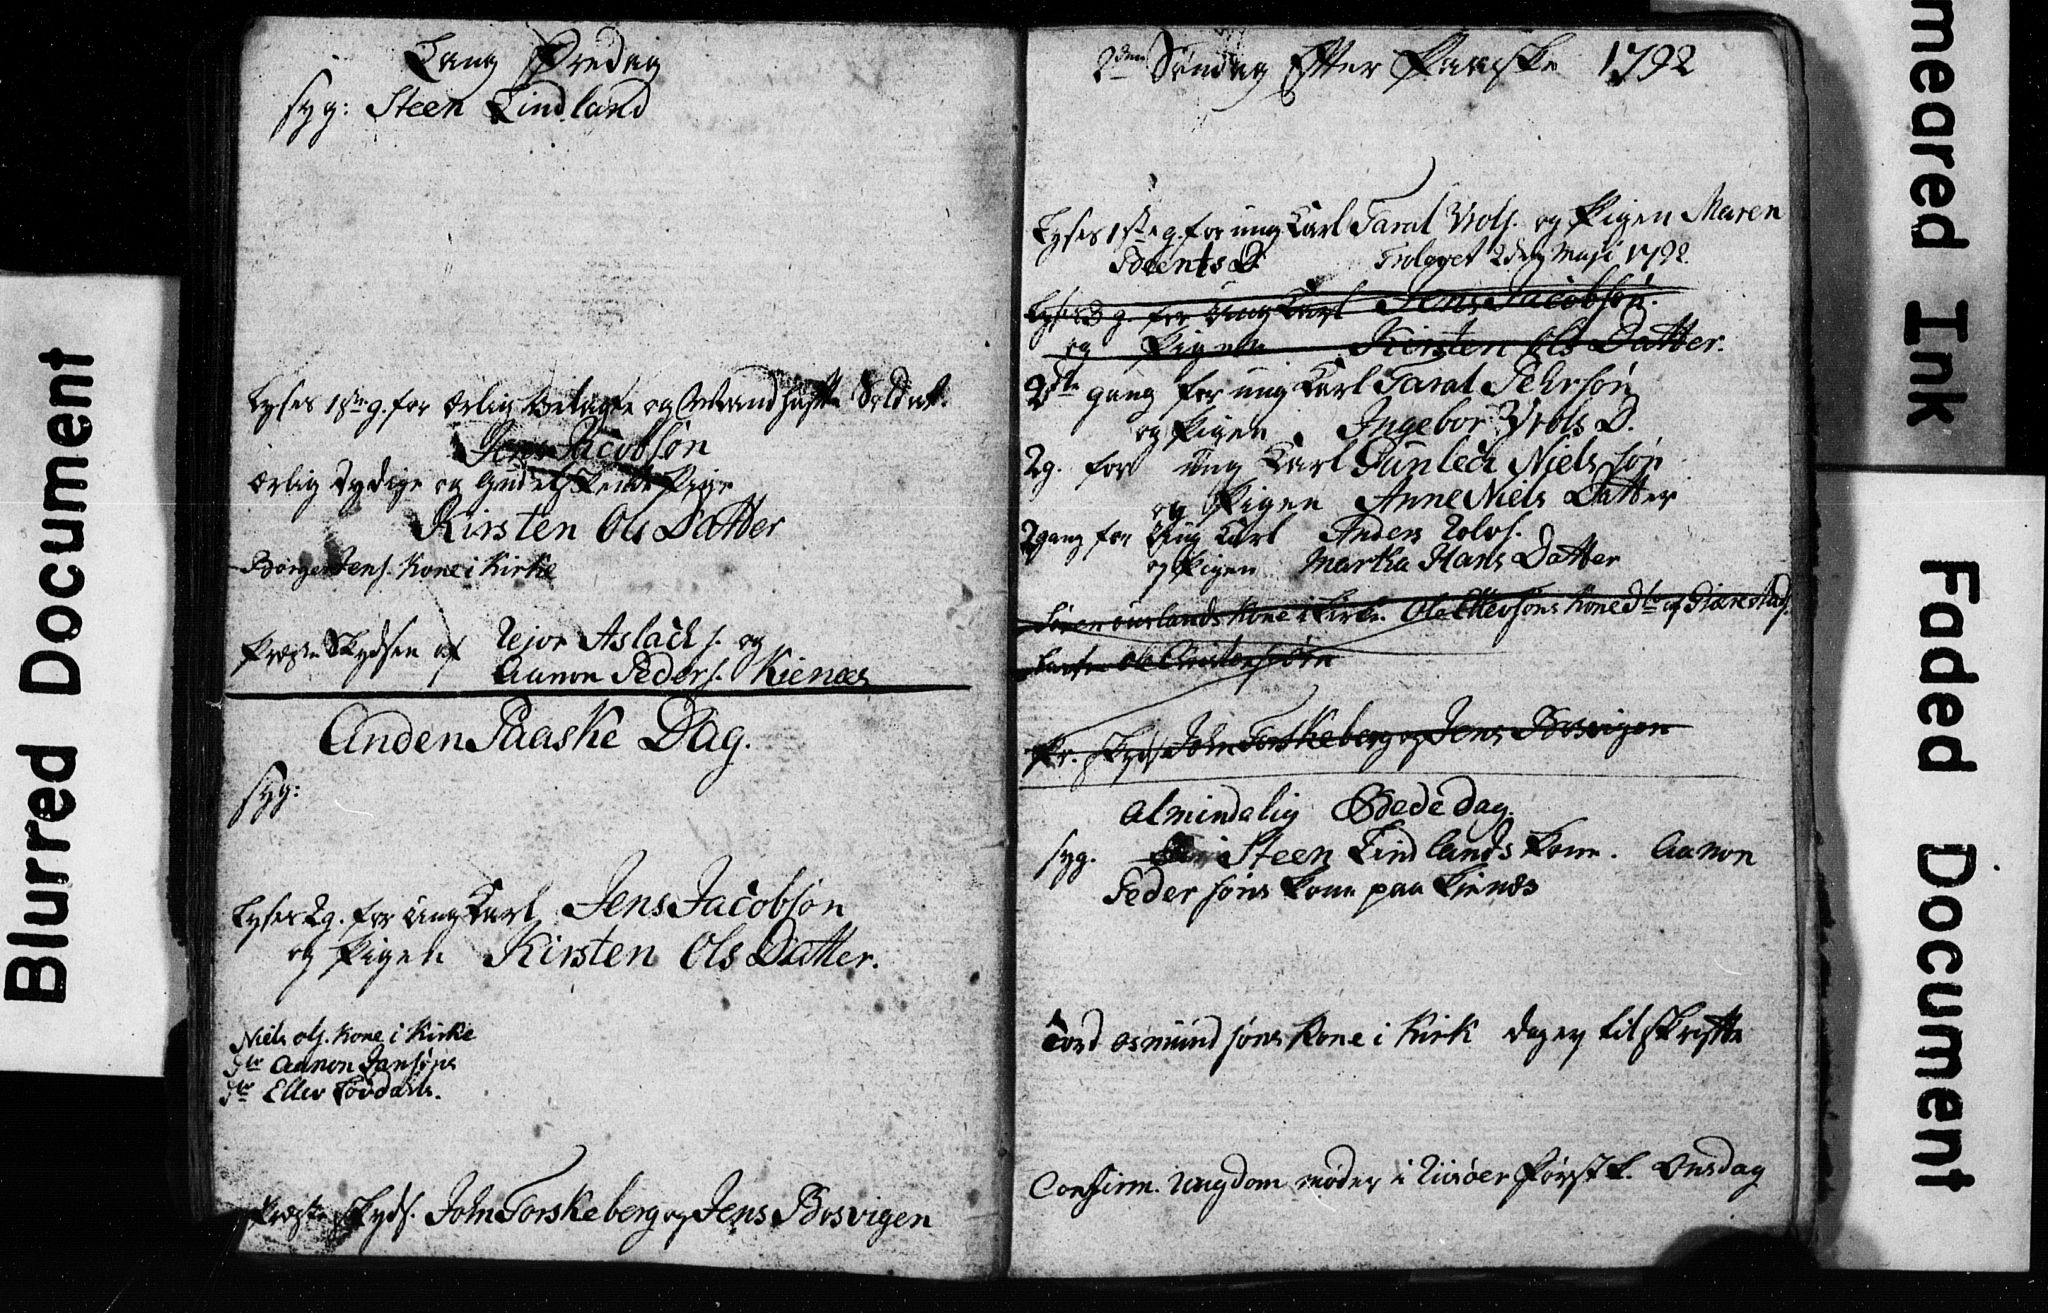 Lang Fredag
syg: Steen Lindland
Lyses 1ste g. for ærlig og Mandhafte Soldat
Jens Jacobsøn
ærlig Dydige og Gudelskende Pige
Kirsten Ols Datter
Børge Jens. Kone i Kirke
Præste Skydsen af Rejor Aslack s. og
Aanon Peders. Kienæs
Anden Paaske Dag.
syg:
Lyses 2 g. for Ung Karl Jens Jacobsøn
og Pigen Kirsten Ols Datter.
Niels Ols. Kone i Kirke
Dto Aanon Jansøns
Dto Ellev
Præste Skyds. John Torskeberg og Jens Bosvigen
2den Søndag Efter Paaske 1792
Lyses 1ste g. for ung Karl Taral Wols. og Pigen Maren
Beents D. Trolovet 2den Maji 1792
Lyses 3 g. for Ung Karl Jens Jacobsøn.
og Pigen Kirsten Ols Datter.
2den gang for ung Karl Taral Pehrsøn
og Pigen Ingebor Wrols D.
2 g. for ung Karl Gunleck Niels søn
og Pigen Anne Niels Datter
2 gang for Ung Karl Anders Rolvs.
og Pigen Martha Hans Datter
Søren Kone i Kirke. Ole Ellevsøns Kone Dto af
Ole Christensøn
Pr. Skyds John Torskeberg og Jens Bosvigen
Almindelig Bededag.
syg. Steen Lindlands Kone. Aanon
Peder søns Kone paa Kienæs
Tord Osmund søns Kone i Kirk Dagen til skrifte
Confirm. Ungdom møder i Riisøer Førstk. Onsdag
Blurred Document
meared Ink
Faded Document